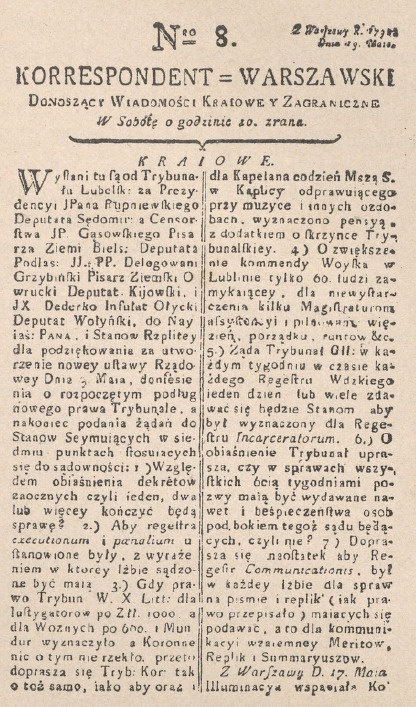 Nro 8.
Z Warszawy R. 1792
Dnia 19. Maia.
KORRESPONDENT = WARSZAWSKI
DONOSZĄCY WIADOMOŚCI KRAIOWE Y ZAGRANICZNE
W Sobótę o godzinie 10. zrana.
KRAIOWE.
Wysłani tu są od Trybuna-
łu Lubelsk: za Prezy-
dencyi JPana Rupniewskiego
Deputata Sędomir: a Censor-
stwa JP. Gąsowskiego Pisa
rza Ziemi Biels: Deputata
Podlas: JJ. PP. Delegowani
Grzybiński Pisarz Ziemski O
wrucki Deputat. Kijowski, i
JX Dederko Infułat Ołycki
Deputat Wołyński, do Nay
iaś: PANA, i Stanow Rzplitey
dla podziękowania za utwo-
rzenie nowey ustawy Rządo-
wey Dnia 3 Maia, doniesie
nia o rozpoczętym podług
nowego prawa Trybunale, a
nakoniec podania żądań do
Stanów Seymuiących w sie-
dmiu punktach stosuiących
się do sadowności: 1) Wzglę-
dem obiaśnienia dekretów
zaocznych czyli ieden, dwa
lub więcey kończyć będą
sprawę? 2.) Aby regestra
executionum i pœnalium u
stanowione były, z wyraże
niem w ktorey Izbie sądzo-
ne być maią 3.) Gdy pra-
wo Trybun W. X Litt: dla
Instygatorow po Złł. 1000. a
dla Wozných po 600. i Mun
dur wyznaczyło a Koronne
nic o tym nie rzekło. przeto
doprasza się Tryb: Kor: tak
o toż samo, iako aby oraz
dla Kapelana codzień Mszą S.
w Kaplicy odprawuiącego
przy muzyce i innych ozdo-
bach, wyznaczono pensyą,
z dodatkiem o skrzynce Try-
bunalskiey. 4) O zwiększe-
nie kommendy Woyska w
Lublinie tylko 60. ludzi za-
mykaiącey, dla niewystar-
czenia kilku Magistraturom
assystencyi i pilnowaniu wię-
zień, porządku, runtow &c.
5.) Żąda Trybunał GII: w ka-
żdym tygodniu w czasie ka-
żdego Regestru Wdzkiego
ieden dzień lub wiele zda-
wać się będzie Stanom aby
był wyznaczony dla Rege-
stru Incarceratorum. 6.) O
obiaśnienie Trybunał upra-
sza, czy w sprawach wszy-
stkich 6cią tygodniami po-
zwy maią być wydawane na-
wet i bespieczeństwa osob
pod, bokiem tegoż sądu będą-
cych, czyli nie? 7) Dopra-
sza się naostatek aby Re-
gestr Communicationis, był
w każdey Izbie dla spraw
na pismie i replik (iak pra-
wo przepisało) maiących się
podawać, a to dla kommuni-
kacyi wzaiemney Meritow,
Replik i Summaryuszow.
Z Warszawy D. 17. Maia
Illuminacya wspaniała Ko